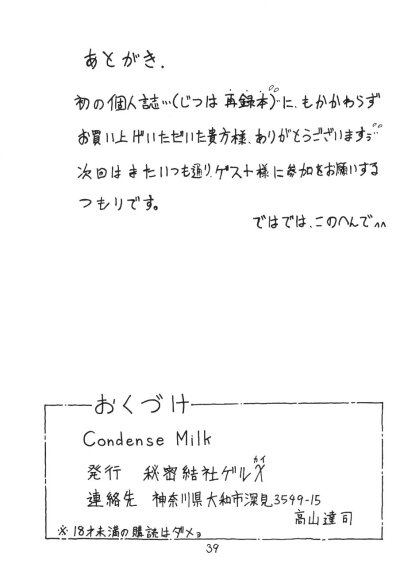 あとがき.
初の個人誌…(じつは再録本)に、もかかわらず
お買い上げいただいた貴方様、ありがとうございます
次回はまたいつも通り、ゲスト様に参加をお願いする
つもりです。
ではでは、このへんで^^
おくづけ
Condense Milk
カイ
発行 秘密結社ゲルX
連絡先 神奈川県大和市深見3549-15
高山達司
※18才未満の購読はダメョ
39